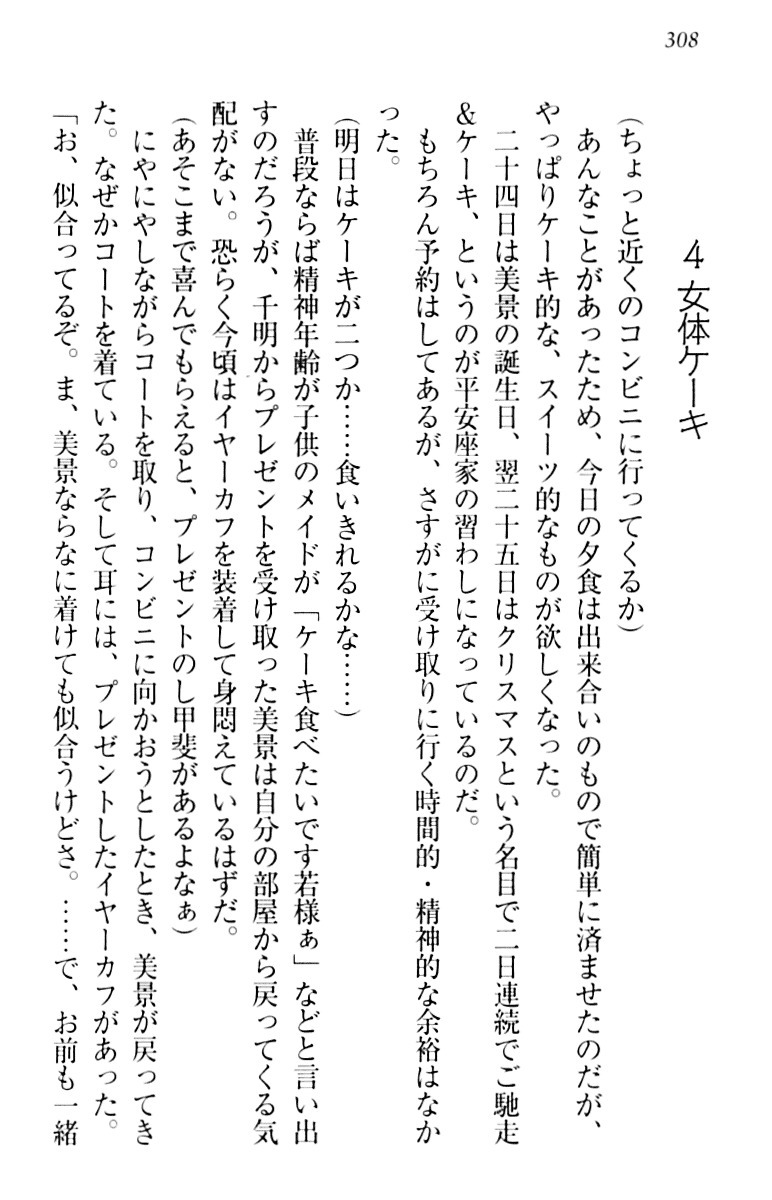 308
4 女体ケーキ
(ちょっと近くのコンビニに行ってくるか)
あんなことがあったため、今日の夕食は出来合いのもので簡単に済ませたのだが、
やっぱりケーキ的な、スイーツ的なものが欲しくなった。
二十四日は美景の誕生日、翌二十五日はクリスマスという名目で二日連続でご馳走
&ケーキ、というのが平安座家の習わしになっているのだ。
もちろん予約はしてあるが、さすがに受け取りに行く時間的・精神的な余裕はなか
った。
(明日はケーキが二つか……食いきれるかな……)
普段ならば精神年齢が子供のメイドが「ケーキ食べたいです若様ぁ」などと言い出
すのだろうが、千明からプレゼントを受け取った美景は自分の部屋から戻ってくる気
配がない。恐らく今頃はイヤーカフを装着して身悶えているはずだ。
(あそこまで喜んでもらえると、プレゼントのし甲斐があるよなぁ)
にやにやしながらコートを取り、コンビニに向かおうとしたとき、美景が戻ってき
た。なぜかコートを着ている。そして耳には、プレゼントしたイヤーカフがあった。
「お、似合ってるぞ。ま、美景ならなに着けても似合うけどさ。……で、お前も一緒